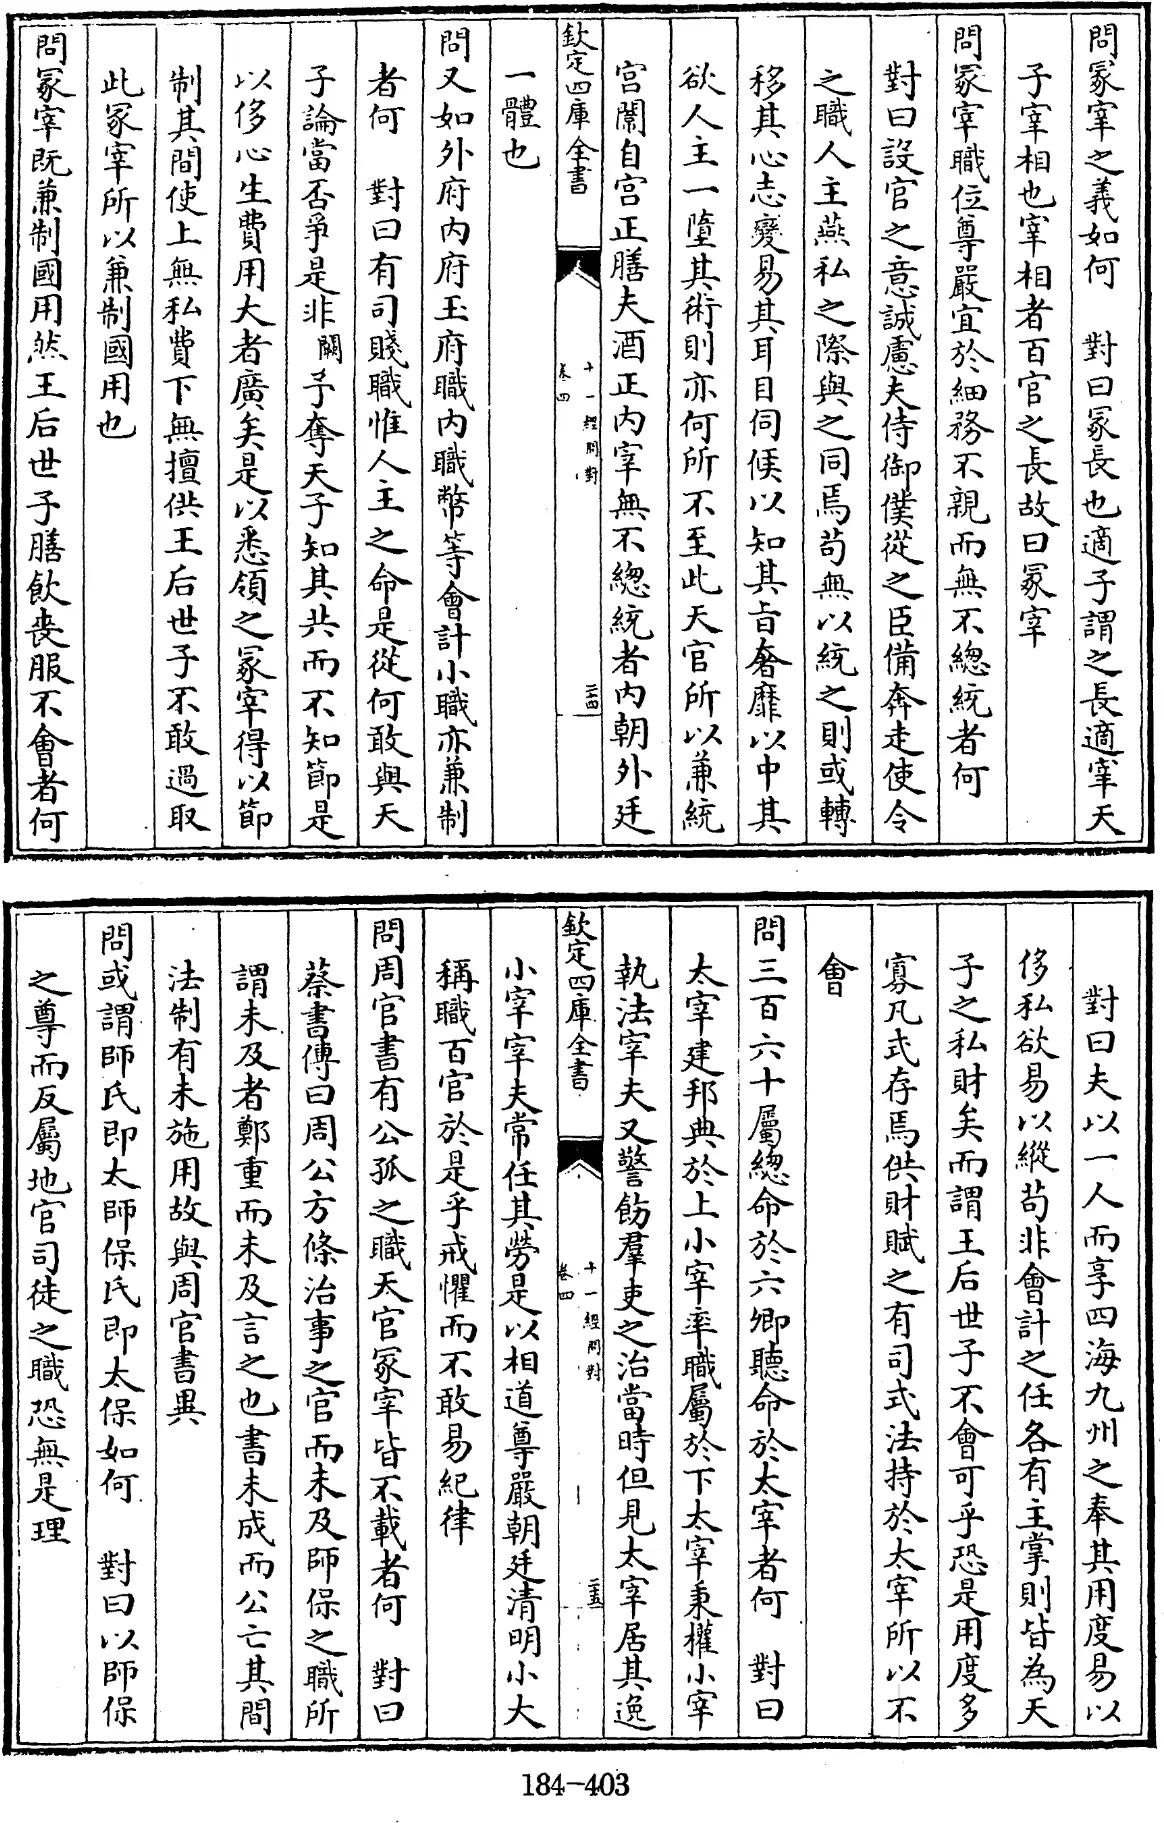 問冢宰之義如何　對曰冢長也適子謂之長適宰天
子宰相也宰相者百官之長故曰冢宰
問冢宰職位尊嚴宜於細務不親而無不總統者何
對曰設官之意誠慮夫侍御僕從之臣備奔走使令
之職人主燕私之際與之同焉茍無以統之則或轉
移其心志變易其耳目伺候以知其旨奢靡以中其
欲人主一墮其術則亦何所不至此天官所以兼統
宫闈自宫正膳夫酒正内宰無不總統者内朝外廷
欽定四庫全書
十一經問對
卷四
三十四
一體也
問又如外府内府玉府職内職幣等會計小職亦兼制
者何　對曰有司賤職惟人主之命是從何敢與天
子論當否爭是非闕予奪天子知其共而不知節是
以侈心生費用大者廣矣是以悉領之冢宰得以節
制其間使上無私費下無擅供王后世子不敢過取
此冢宰所以兼制國用也
問冢宰既兼制國用然王后世子膳飲喪服不會者何
對曰夫以一人而享四海九州之奉其用度易以
侈私欲易以縱茍非會計之任各有主掌則皆為天
子之私財矣而謂王后世子不會可乎恐是用度多
寡凡式存焉供財賦之有司式法持於太宰所以不
會
問三百六十屬總命於六卿聽命於太宰者何　對曰
太宰建邦典於上小宰率職屬於下太宰秉權小宰
執法宰夫又警飭羣吏之治當時但見太宰居其逸
欽定四庫全書
十一經問對
卷四
三十五
小宰宰夫常任其勞是以相道尊嚴朝廷清明小大
稱職百官於是乎戒懼而不敢易紀律
問周官書有公孤之職天官冢宰皆不載者何　對曰
蔡書傳曰周公方條治事之官而未及師保之職所
謂未及者鄭重而未及言之也書未成而公亡其間
法制有未施用故與周官書異
問或謂師氏即太師保氏即太保如何　對曰以師保
之尊而反屬地官司徒之職恐無是理
184-403